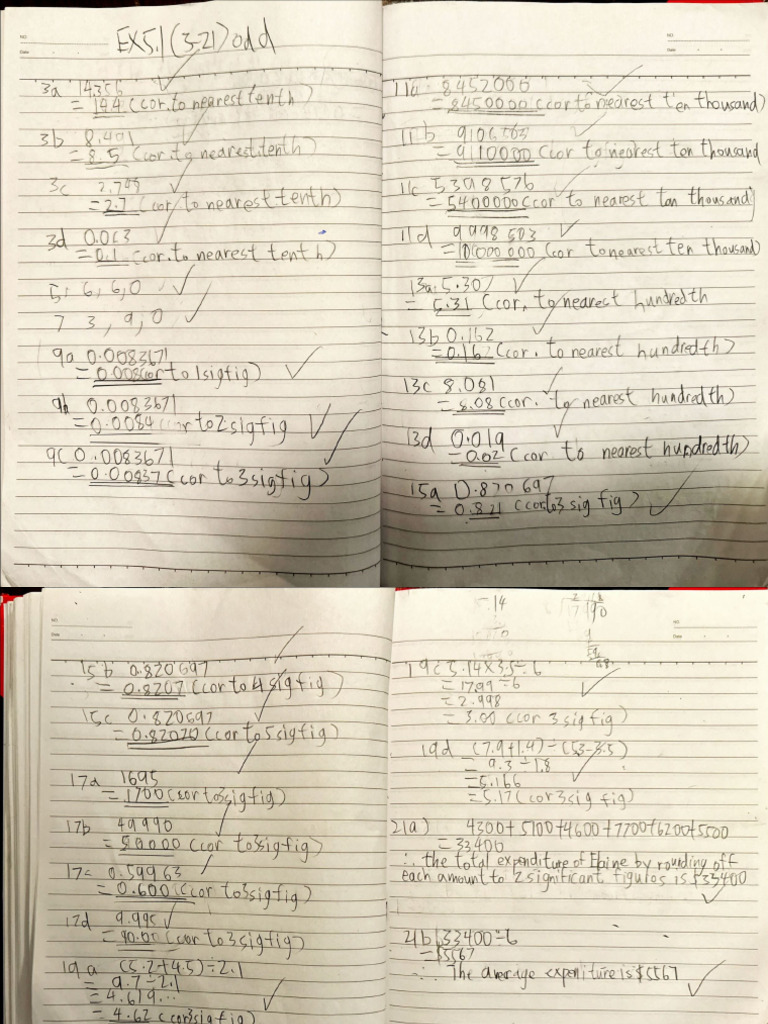 EX5.1 (3-21) odd
3a 14.356
= 14.4 (cor. to nearest tenth)
3b 8.491
= 8.5 (cor. to nearest tenth)
3c 2.749
= 2.7 (cor to nearest tenth)
3d 0.063
= 0.1 (cor. to nearest tenth)
5, 6, 6, 0
7 3, 9, 0
9a 0.0083671
= 0.008 (cor to 1 sig fig)
9b 0.0083671
= 0.0084 (cor to 2 sig fig
9c 0.0083671
= 0.00837 (cor to 3 sig fig)
11a 8452000
= 8450000 (cor to nearest ten thousand)
11b
= 9110000 (cor to nearest ten thousand
11c 5398526
= 5400000 (cor to nearest ten thousand)
11d 9998503
= 10000 000 (cor to nearest ten thousand)
13a 5.307
= 5.31 (cor. to nearest hundredth
13b 0.162
= 0.162 (cor. to nearest hundredth)
13c 8.081
= 8.08 (cor. to nearest hundredth)
13d 0.019
= 0.02 (cor to nearest hundredth)
15a 0.820697
= 0.821 (cor to 3 sig fig)
15b 0.820697
= 0.8207 (cor to 4 sig fig)
15c 0.820697
= 0.82070 (cor to 5 sig fig)
17a 1695
= 1700 (cor to 3 sig fig)
17b 49990
= 50000 (cor to 3 sig fig)
17c 0.59963
= 0.600 (cor to 3 sig fig)
17d 9.995
= (cor to 3 sig fig)
19a (5.2+4.5)÷2.1
= 9.7÷2.1
= 4.619...
= 4.62 (cor 3 sig fig)
5.14
19c 5.14×3.5÷6
= 17.99÷6
= 2.998
= 3.00 (cor 3 sig fig)
19d (7.9+1.4)÷(5.3-3.5)
= 9.3÷1.8
= 5.166
= 5.17 (cor 3 sig fig)
21a) 4300+5100+4600+7700+6200+5500
= 33400
∴ the total expenditure of Elaine by rounding off
each amount to 2 significant figures is $33400
21b) 33400÷6
= $5567
∴ The average expenditure is $5567